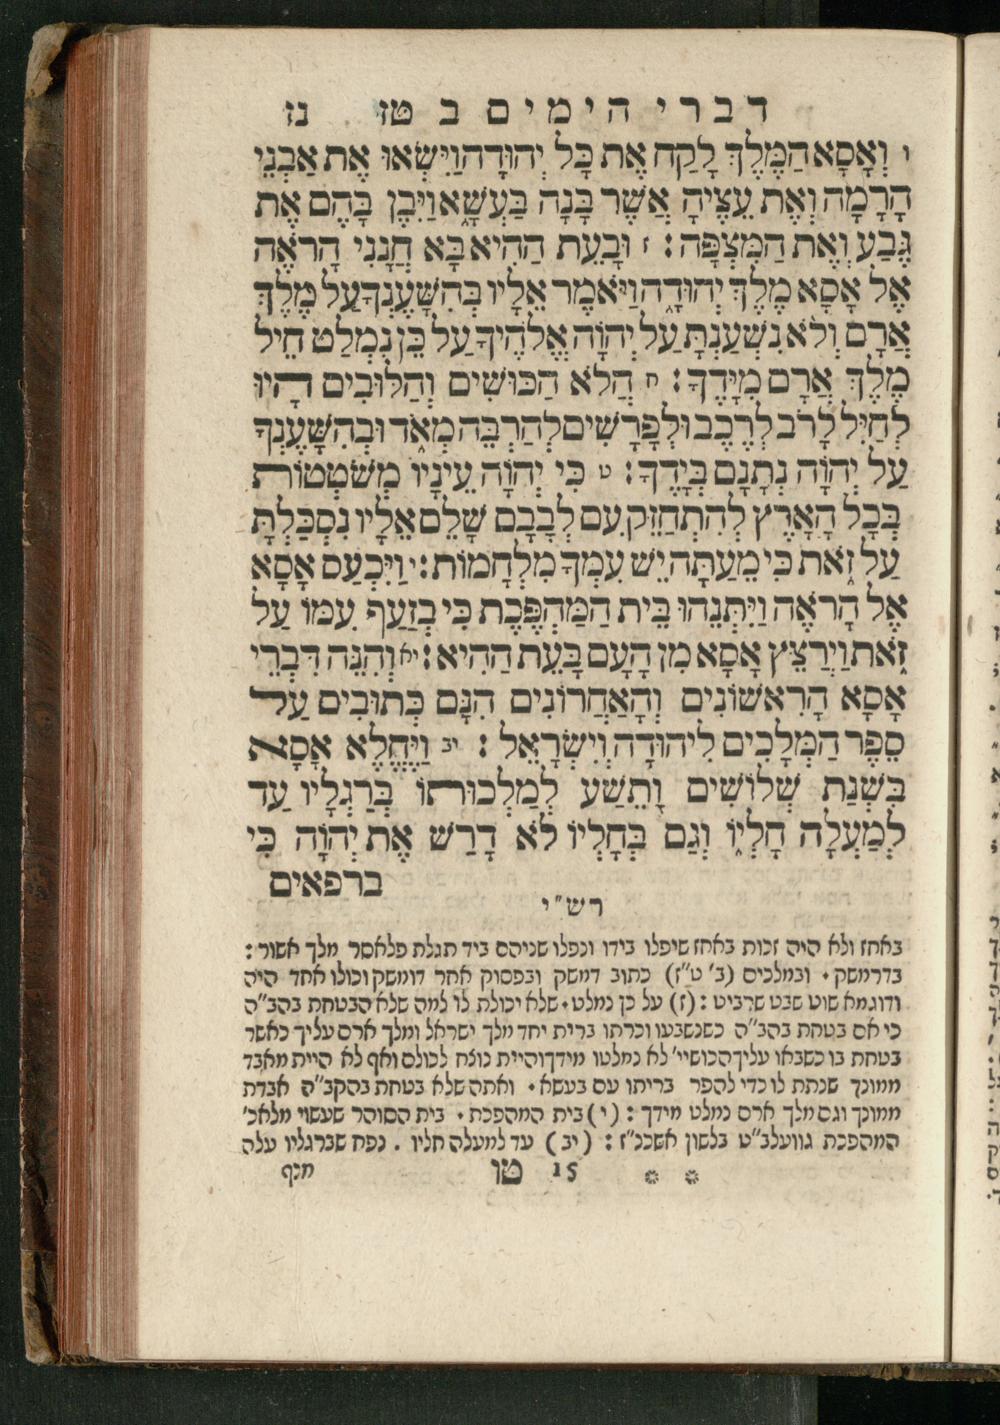 דברי הימים ב טז נז
ו וְאָסָא הַמֶּלֶךְ לָקַח אֶת כָּל יְהוּדָה וַיִּשְׂאוּ אֶת אַבְנֵי
הָרָמָה וְאֶת עֵצֶיהָ אֲשֶׁר בָּנָה בַּעְשָׁא וַיִּבֶן בָּהֶם אֶת
גֶּבַע וְאֶת הַמִּצְפָּה׃ ז וּבָעֵת הַהִיא בָּא חֲנָנִי הָרֹאֶה
אֶל אָסָא מֶלֶךְ יְהוּדָה וַיֹּאמֶר אֵלָיו בְּהִשָּׁעֶנְךָ עַל מֶלֶךְ
אֲרָם וְלֹא נִשְׁעַנְתָּ עַל יְהוָֹה אֱלֹהֶיךָ עַל כֵּן נִמְלַט חֵיל
מֶלֶךְ אֲרָם מִיָּדֶךָ׃ ח הֲלֹא הַכּוּשִׁים וְהַלּוּבִים הָיוּ
לְחַיִל לָרֹב לְרֶכֶב וּלְפָרָשִׁים לְהַרְבֵּה מְאֹד וּבְהִשָּׁעֶנְךָ
עַל יְהוָֹה נְתָנָם בְּיָדֶךָ׃ ט כִּי יְהוָֹה עֵינָיו מְשֹׁטְטוֹת
בְּכָל הָאָרֶץ לְהִתְחַזֵּק עִם לְבָבָם שָׁלֵם אֵלָיו נִסְכַּלְתָּ
עַל זֹאת כִּי מֵעַתָּה יֵשׁ עִמְּךָ מִלְחָמוֹת׃ י וַיִּכְעַס אָסָא
אֶל הָרֹאֶה וַיִּתְּנֵהוּ בֵּית הַמַּהְפֶּכֶת כִּי בְזַעַף עִמּוֹ עַל
זֹאת וַיְרַצֵּץ אָסָא מִן הָעָם בָּעֵת הַהִיא׃ יא וְהִנֵּה דִּבְרֵי
אָסָא הָרִאשׁוֹנִים וְהָאַחֲרוֹנִים הִנָּם כְּתוּבִים עַל
סֵפֶר הַמְּלָכִים לִיהוּדָה וְיִשְׂרָאֵל׃ יב וַיֶּחֱלֶא אָסָא
בִּשְׁנַת שְׁלוֹשִׁים וָתֵשַׁע לְמַלְכוּתוֹ בְּרַגְלָיו עַד
לְמַעְלָה חָלְיוֹ וְגַם בְּחָלְיוֹ לֹא דָרַשׁ אֶת יְהוָֹה כִּי
ברפאים
רש"י
באחז ולא היה זכות באחז שיפלו בידו ונפלו שניהם ביד תגלת פלאסר מלך אשור:
בדרמשק. ובמלכים (ב' ט"ז) כתוב דמשק ובפסוק אחר דומשק וכולו אחד היה
ודוגמא שוט שבט שרביט: (ז) על כן נמלט. שלא יכולת לו למה שלא הבטחת בהב"ה
כי אם בטחת בהב"ה כשנשבעו וכרתו ברית יחד מלך ישראל ומלך ארם עליך כאשר
בטחת בו כשבאו עליך הכושיי' לא נמלטו מידך והיית נוצח לכולם ואף לא היית מאבד
ממונך שנתת לו כדי להפר בריתו עם בעשא. ואתה שלא בטחת בהקב"ה אבדת
ממונך וגם מלך ארם נמלט מידך: (י) בית המהפכת. בית הסוהר שעשוי מלאכ'
המהפכת גוועלב"ט בלשון אשכנ"ז: (יב) עד למעלה חליו. נפח שברגליו עלה
* * 15 טו חנף